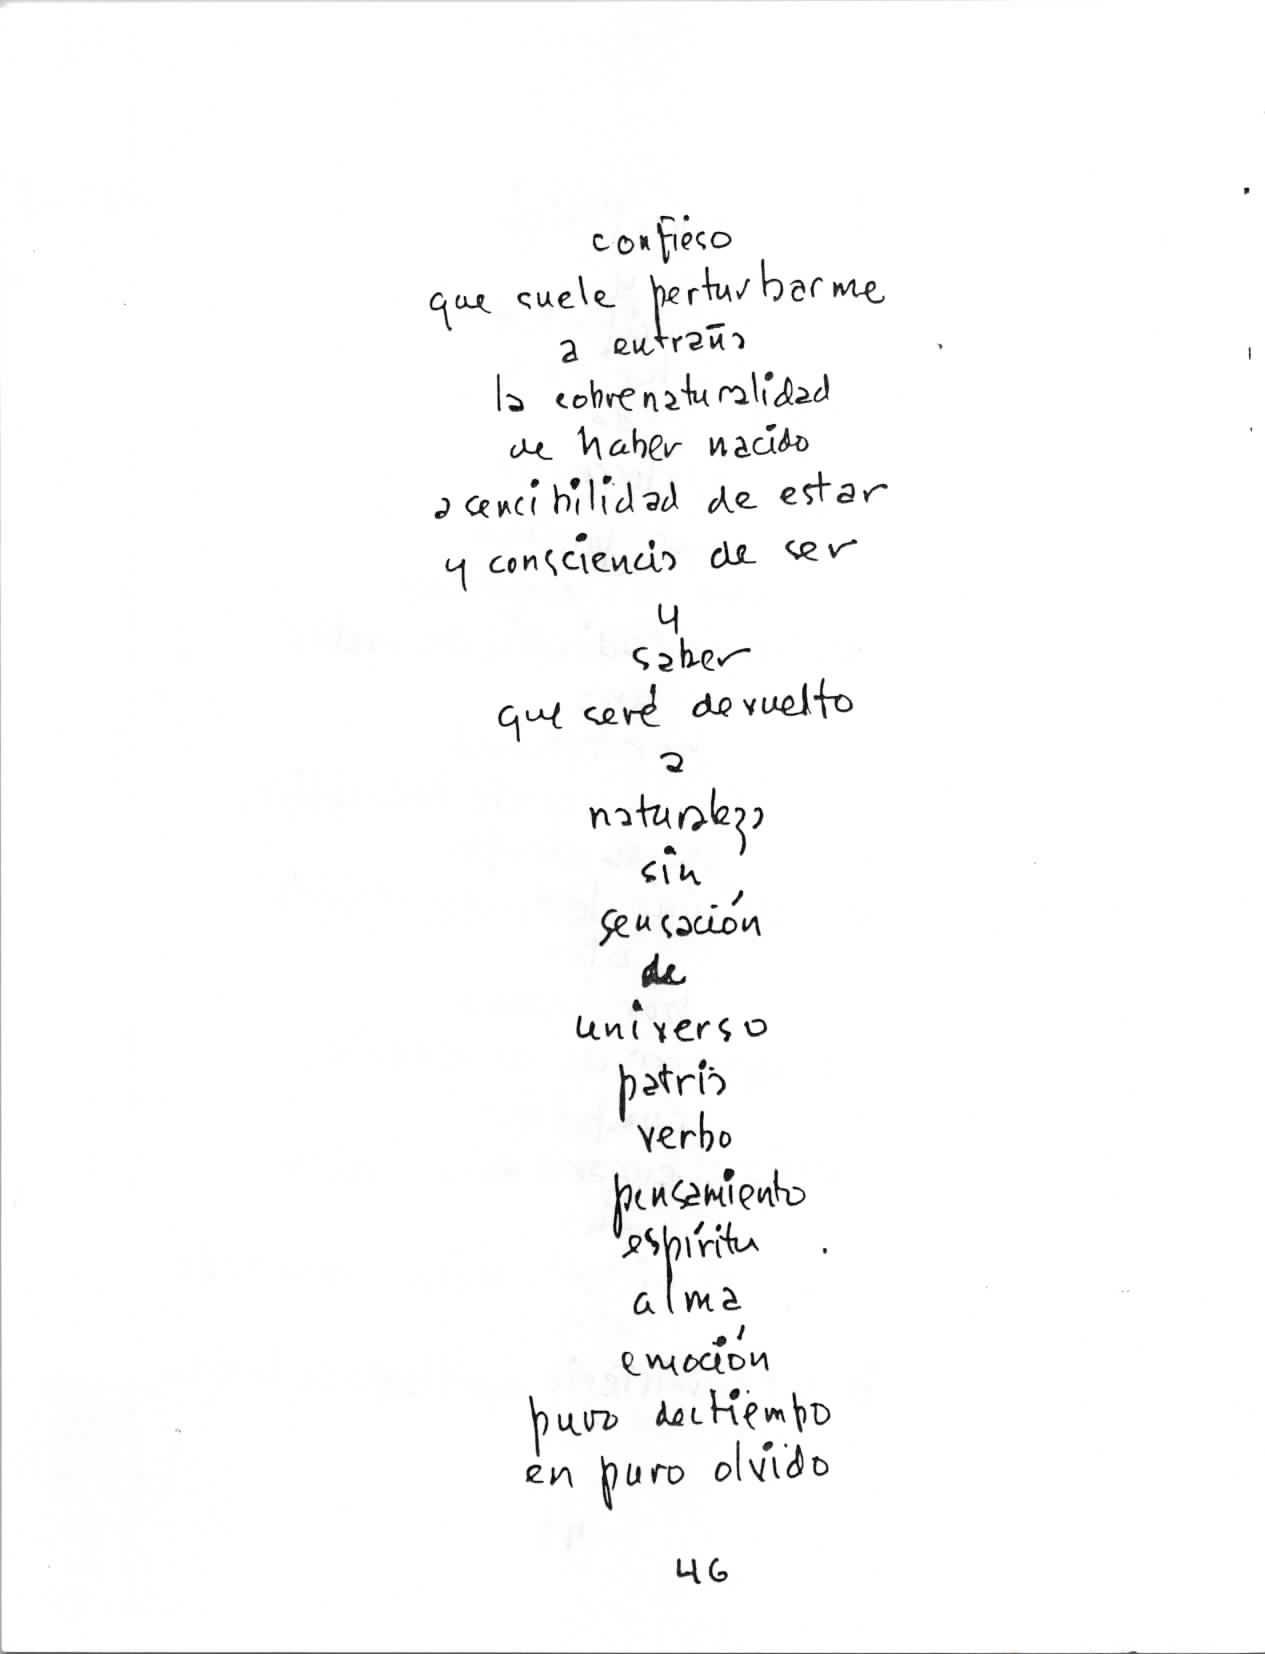 confieso
que suele perturbarme
a entraña
la sobrenaturalidad
de haber nacido
a sensibilidad de estar
y consciencia de ser
y
saber
que seré devuelto
a
naturaleza
sin
sensación
de
universo
patria
verbo
pensamiento
espíritu
alma
emoción
puro destiempo
en puro olvido
46